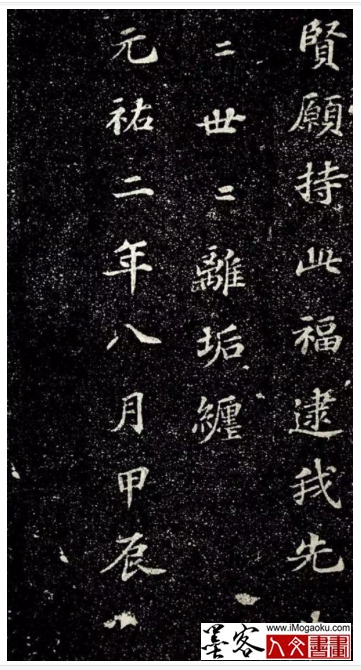 賢願持此福逮我先
二世二離垢纏
元祐二年八月甲辰
墨客
www.iMogaoku.com
人文書畫